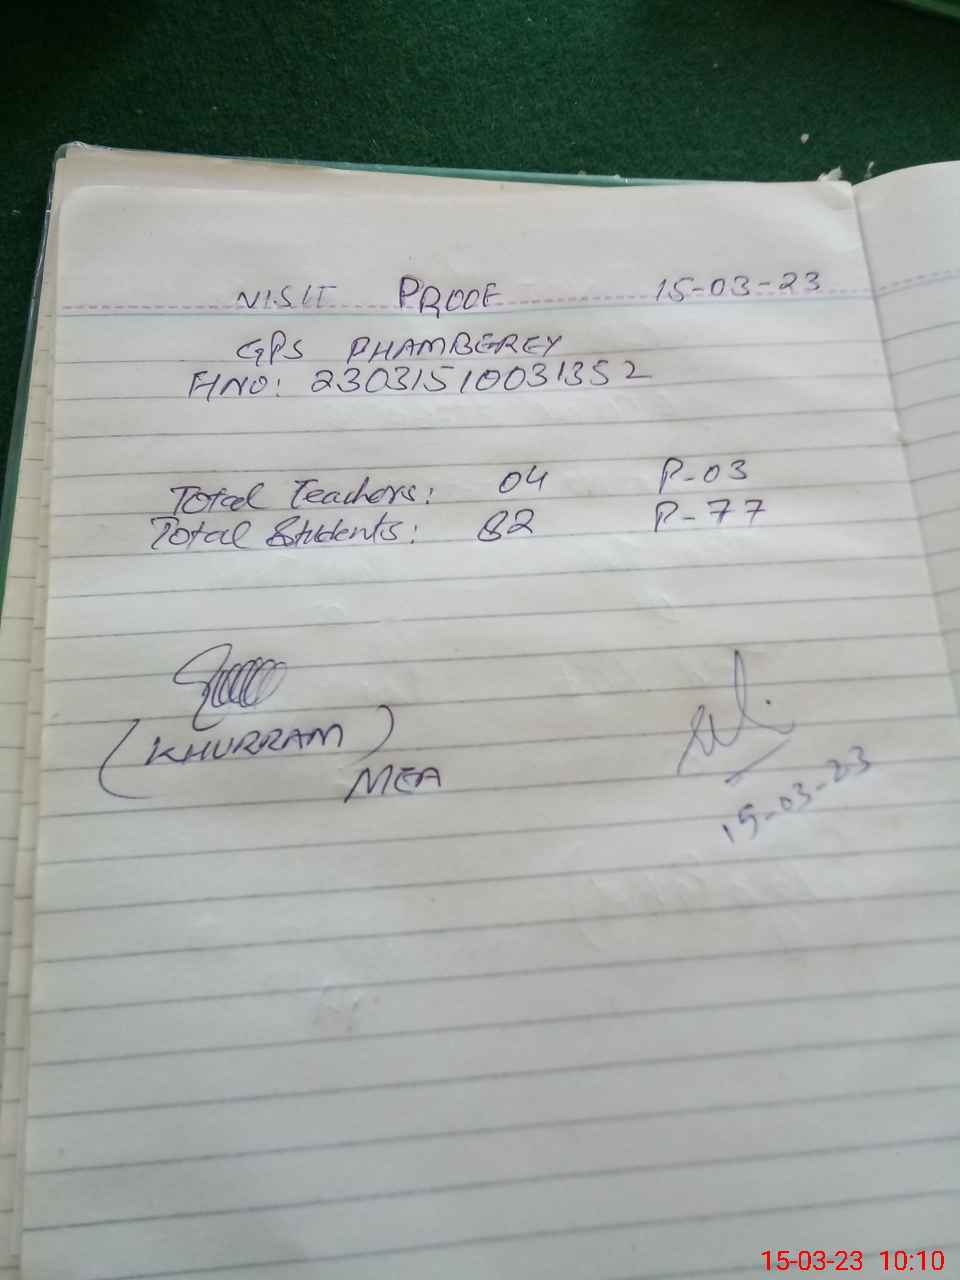 VISIT PROOF 15-03-23
GPS PHAMBEREY
FINO: 23031510031352
Total Teachers: 04 P-03
Total Students: 82 P-77
(KHURRAM)
MEA
15-03-23
15-03-23 10:10